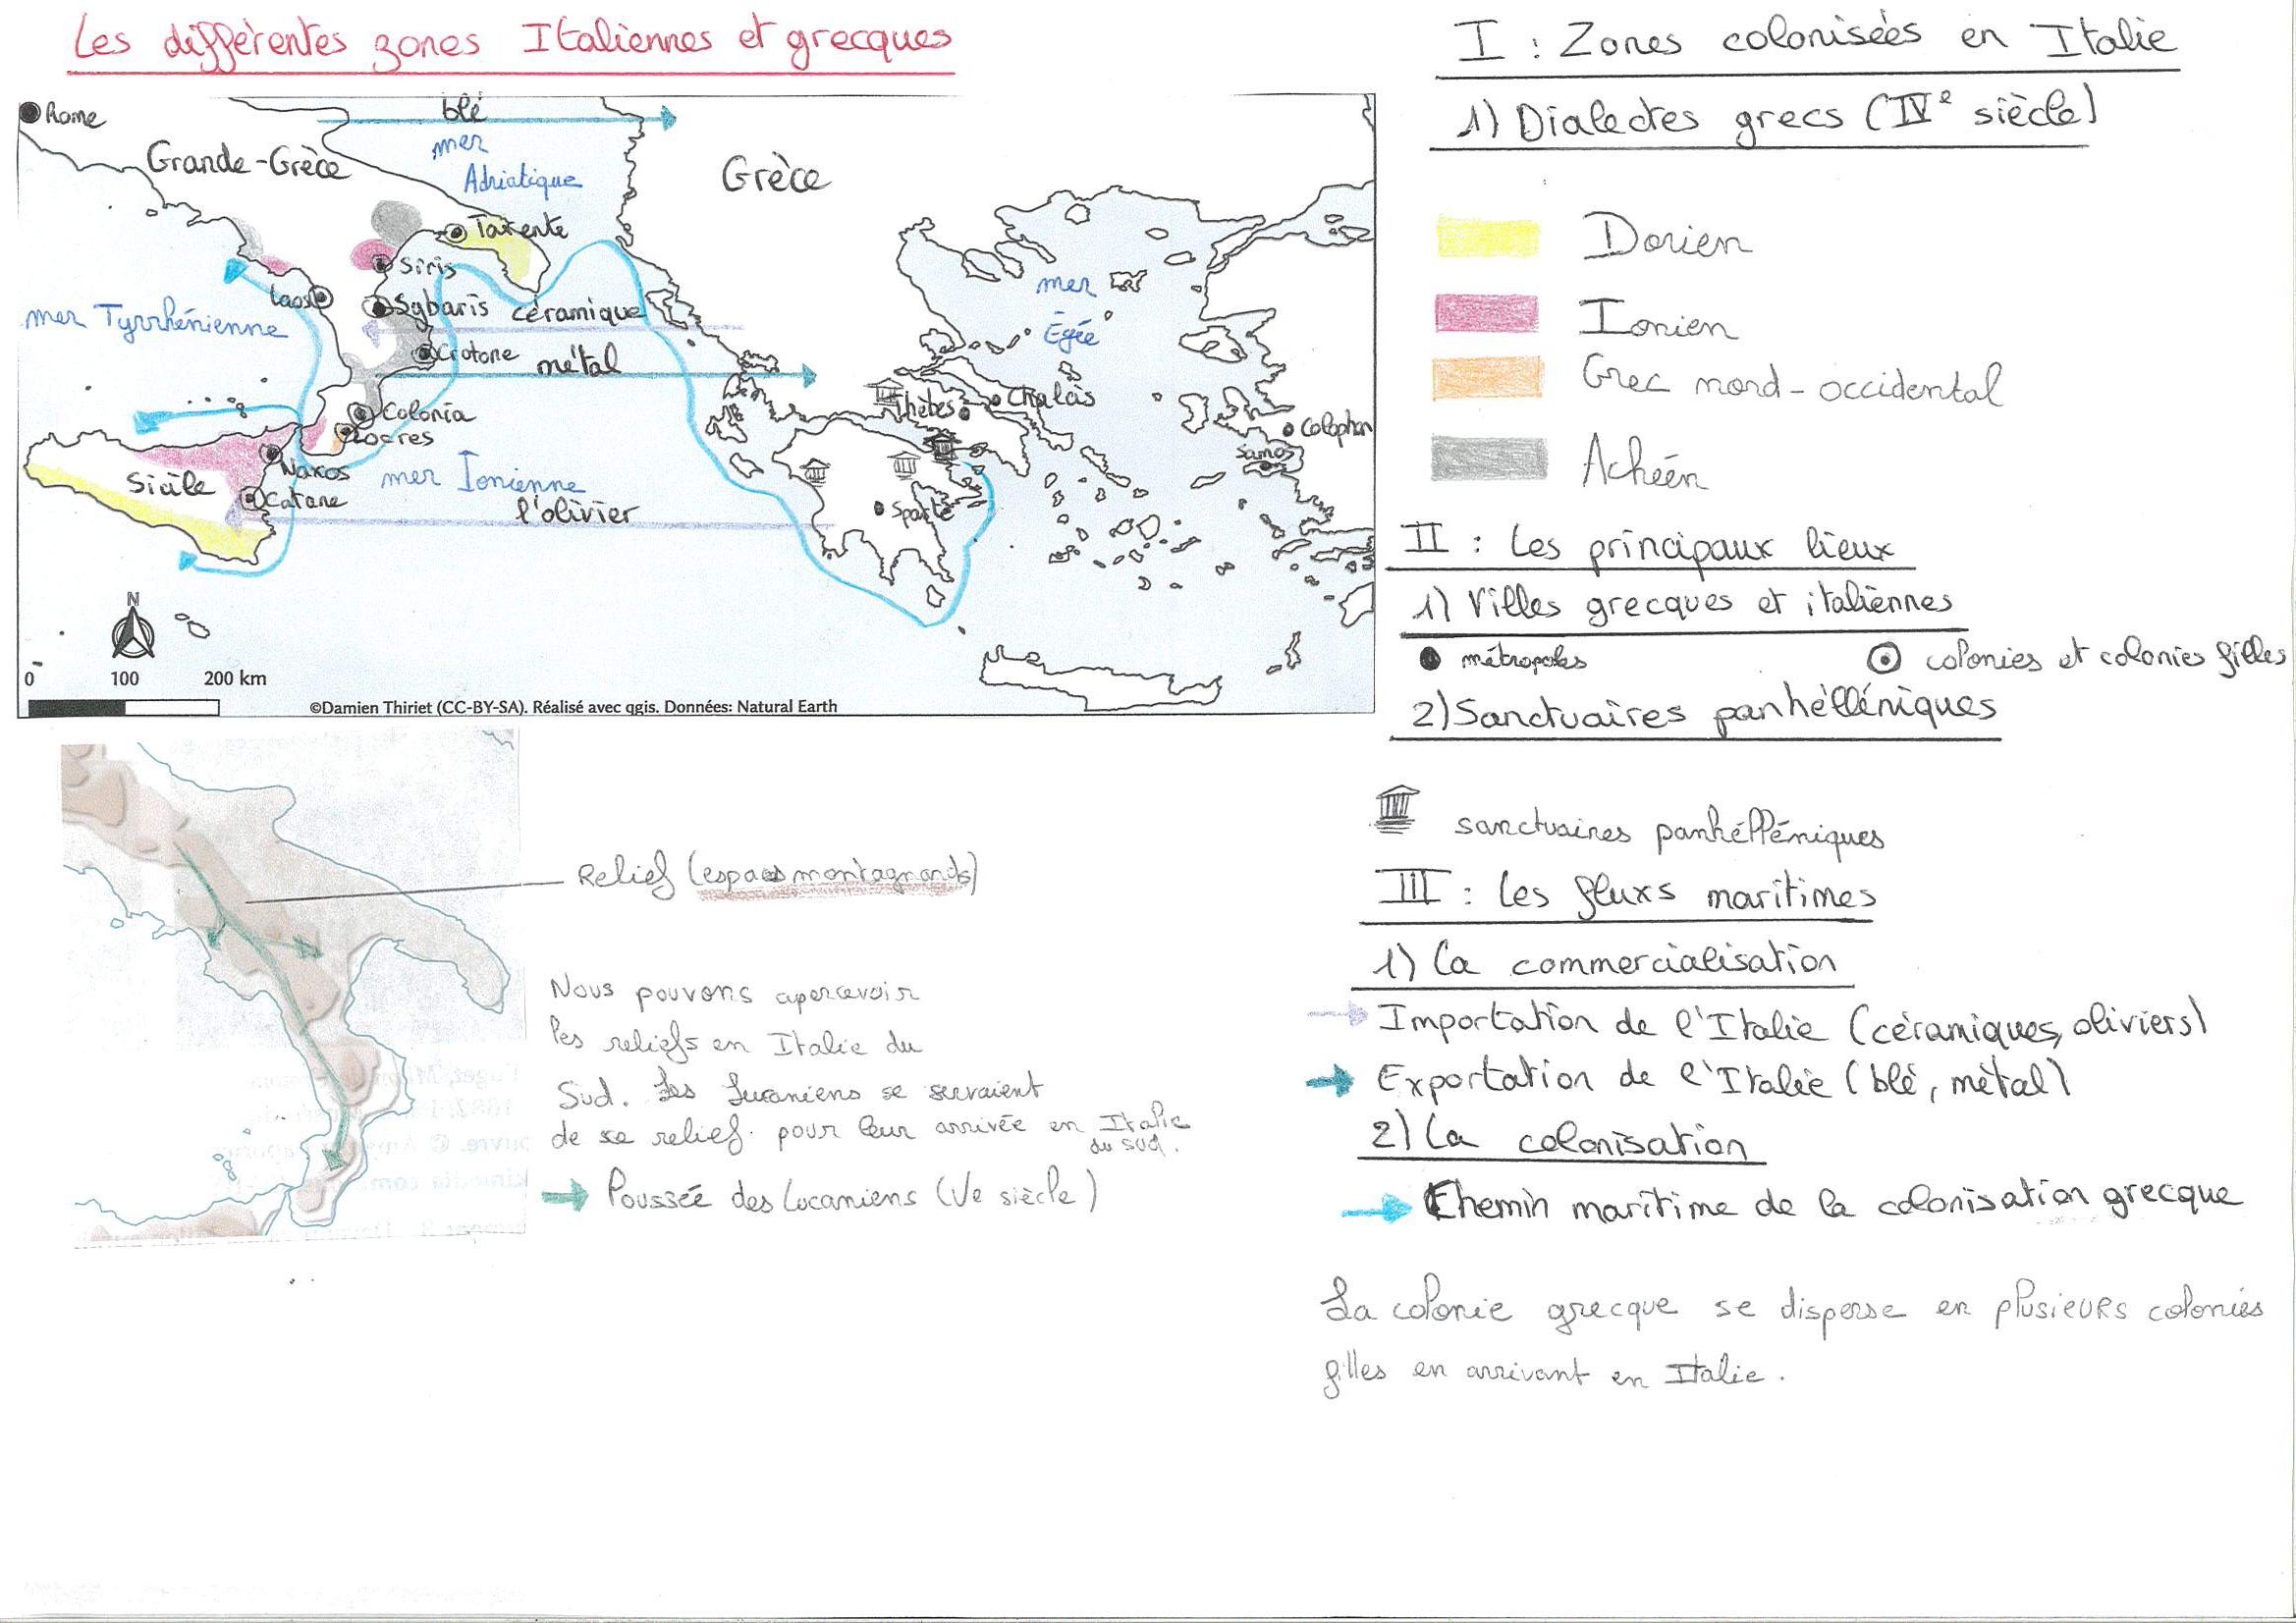 Les différentes zones Italiennes et grecques
Rome
blé
Grande-Grèce
mer
Adriatique
Grèce
Tarente
Siris
Laos
Sybaris
céramique
mer Tyrrhénienne
Crotone
métal
mer
Égée
Thèbes
Chalcis
Colonia
Locres
Colophon
Samos
Naxos
Sicile
Catane
mer Ionienne
l'olivier
Sparte
N
0 100 200 km
©Damien Thiriet (CC-BY-SA). Réalisé avec qgis. Données: Natural Earth
Relief (espaces montagnards)
Nous pouvons apercevoir
les reliefs en Italie du
Sud. Les Lucaniens se servaient
de se relief pour leur arrivée en Italie
du sud.
Poussée des Lucaniens (Ve siècle)
I : Zones colonisées en Italie
1) Dialectes grecs (IVe siècle)
Dorien
Ionien
Grec nord-occidental
Achéen
II : Les principaux lieux
1) Villes grecques et italiennes
métropoles
colonies et colonies filles
2) Sanctuaires panhélléniques
sanctuaires panhélléniques
III : Les fluxs maritimes
1) La commercialisation
Importation de l'Italie (céramiques, oliviers)
Exportation de l'Italie (blé, métal)
2) La colonisation
Chemin maritime de la colonisation grecque
La colonie grecque se disperse en plusieurs colonies
filles en arrivant en Italie.